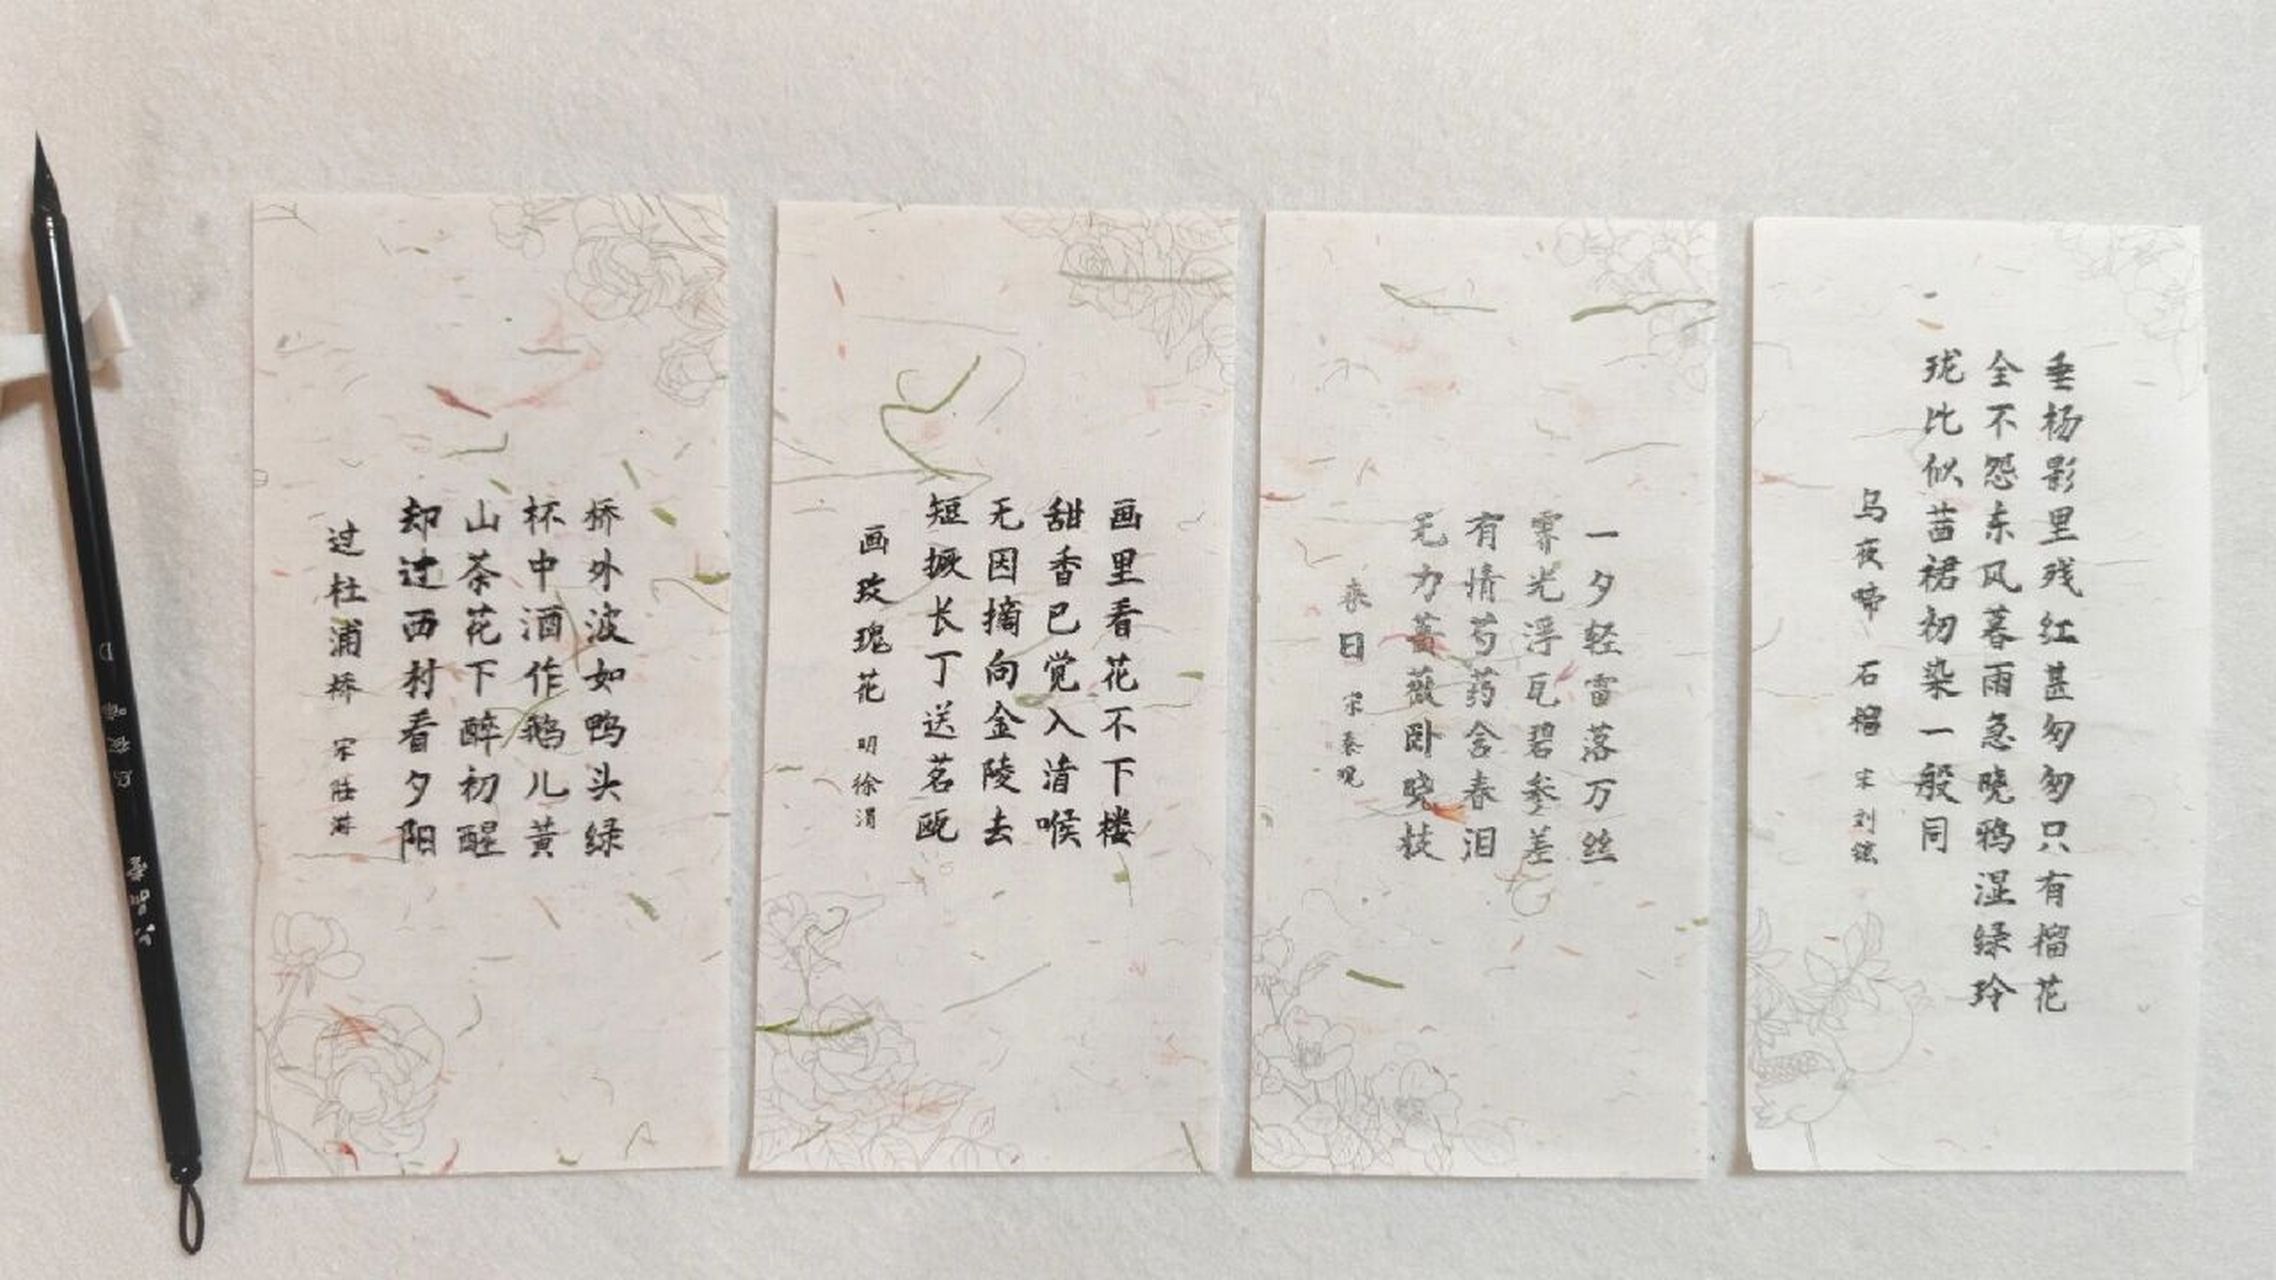 桥外波如鸭头绿
杯中酒作鹅儿黄
山茶花下醉初醒
却过西村看夕阳
过杜浦桥 宋 陆游
画里看花不下楼
甜香已觉入清喉
无因摘向金陵去
短撅长丁送茗瓯
画玫瑰花 明 徐渭
一夕轻雷落万丝
霁光浮瓦碧参差
有情芍药含春泪
无力蔷薇卧晓枝
春日 宋 秦观
垂杨影里残红甚匆匆只有榴花
全不怨东风暮雨急晓鸦湿绿玲
珑比似茜裙初染一般同
乌夜啼 石榴 宋 刘铉
六品堂 乌夜啼 D